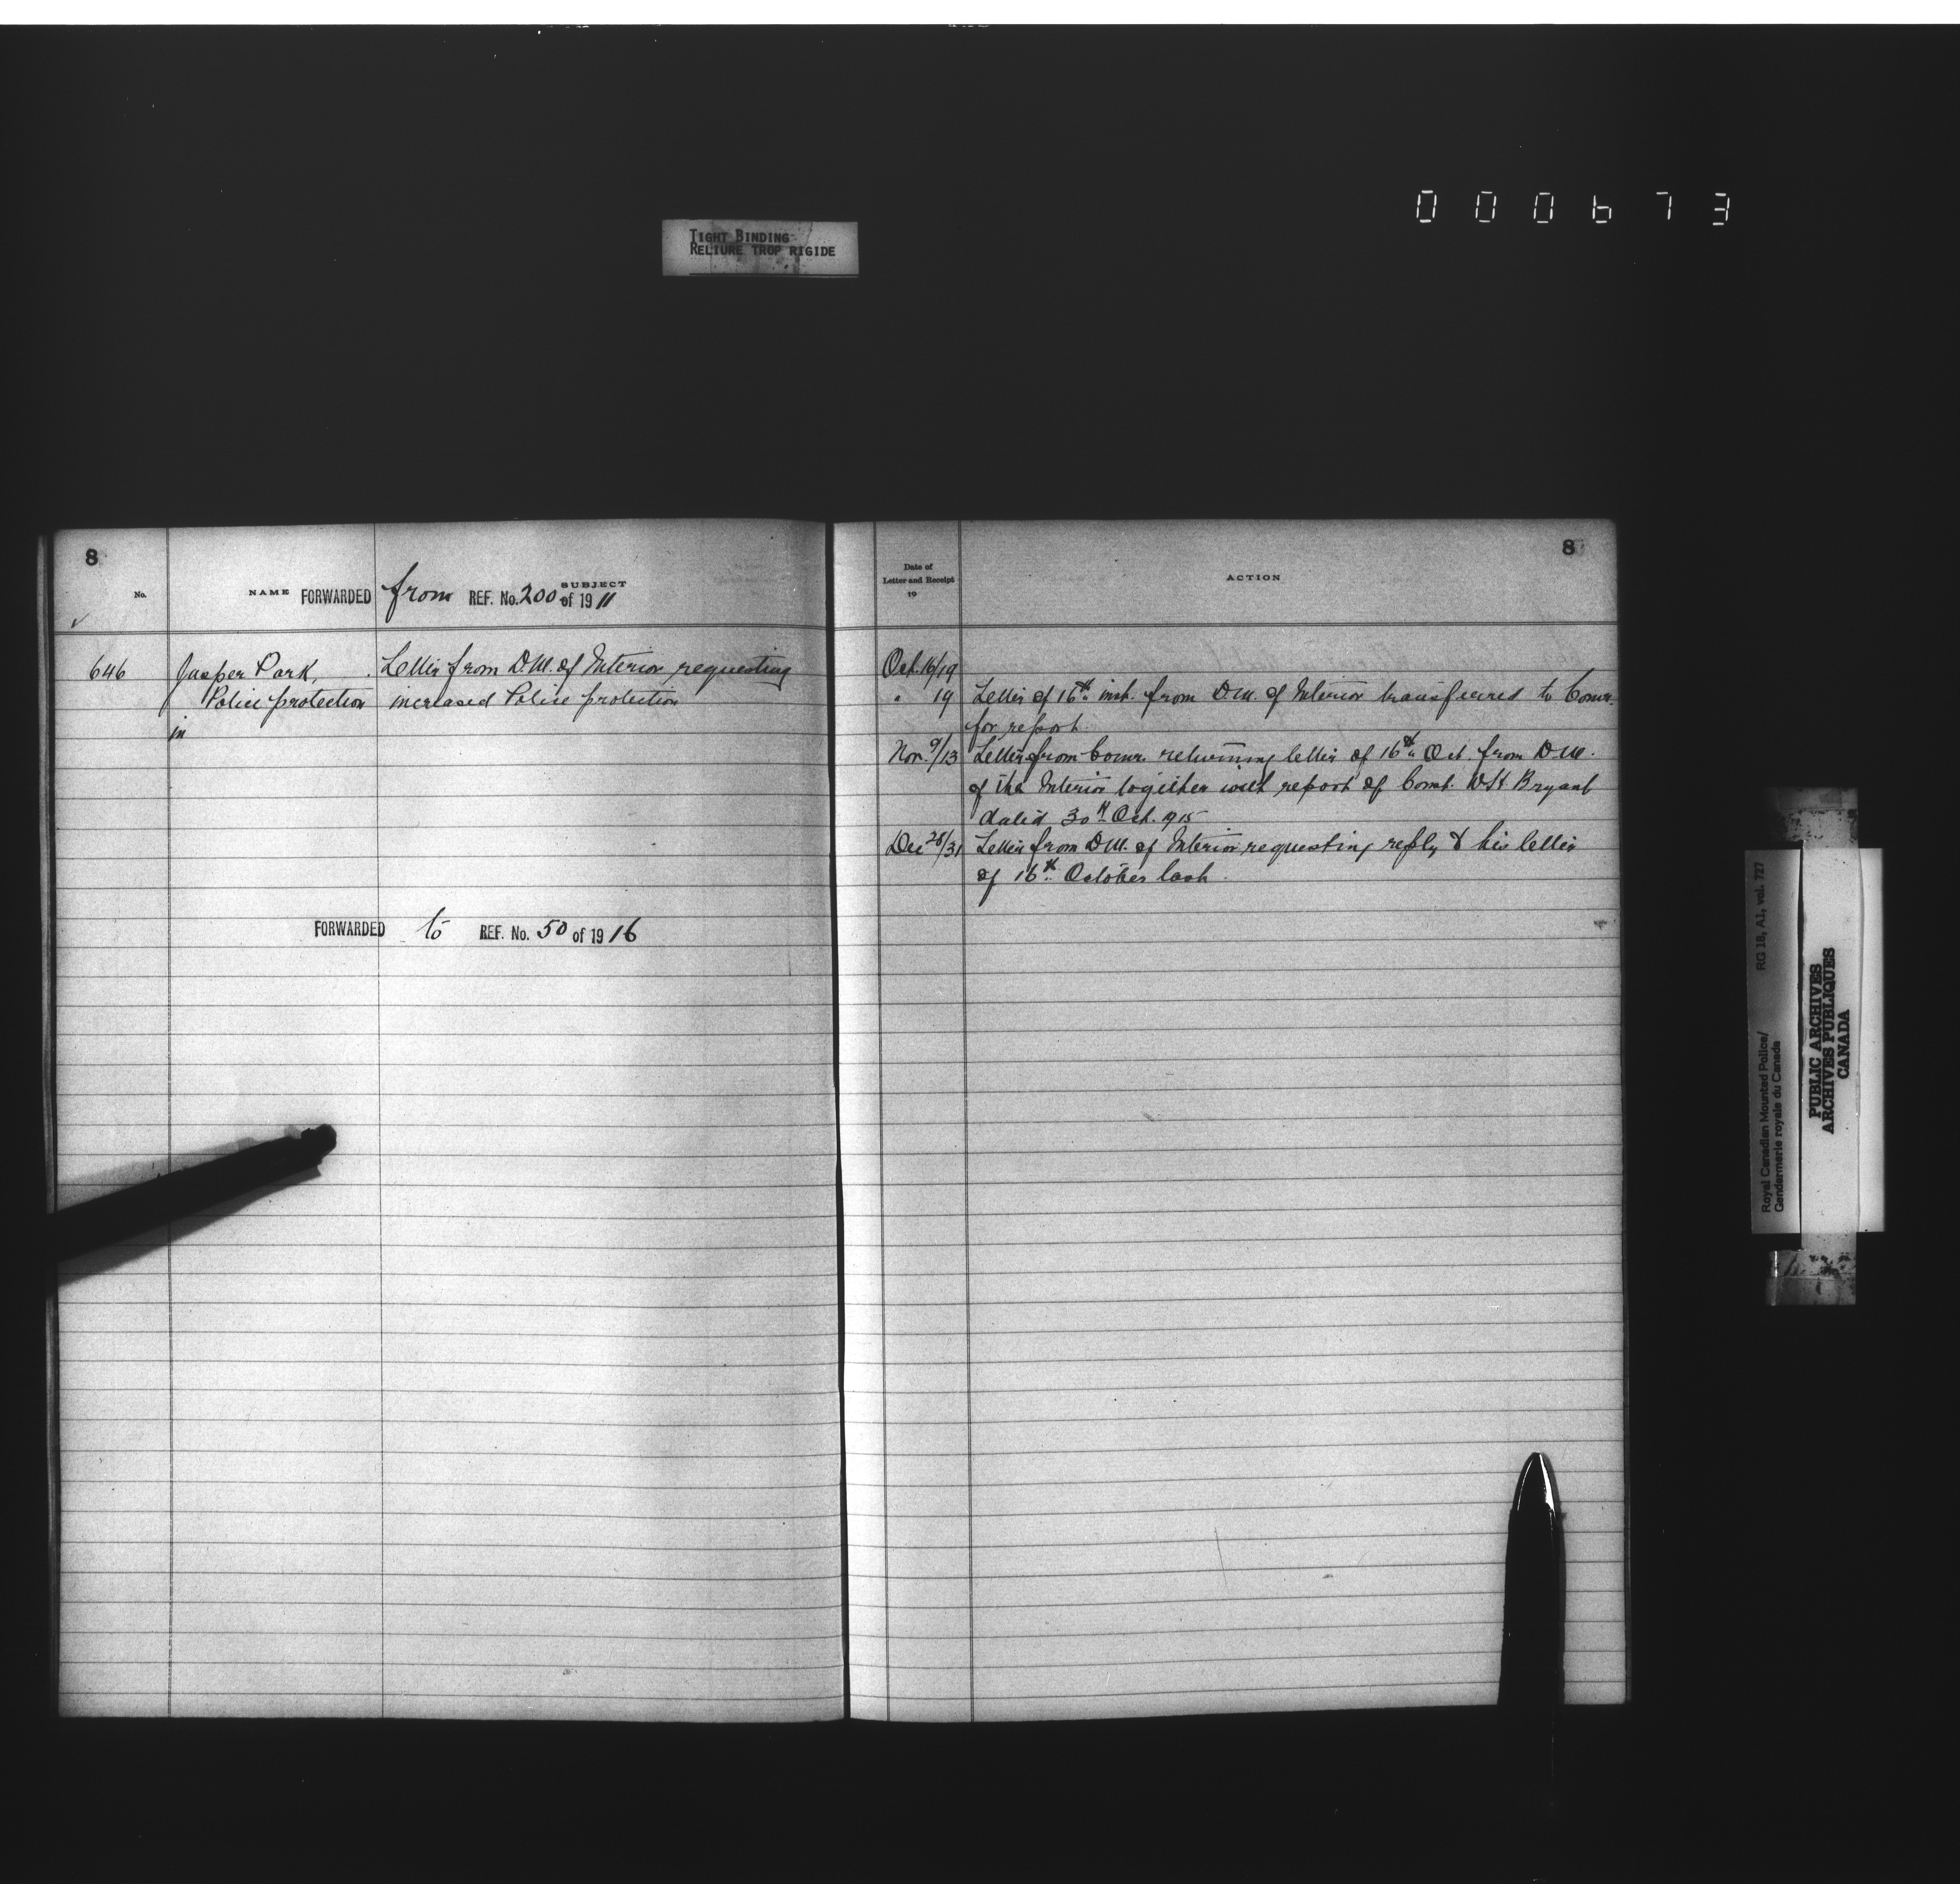 000673
TIGHT BINDING
RELIURE TROP RIGIDE
8
No.
NAME
SUBJECT
FORWARDED from REF. No. 200 of 19 11
646
Jasper Park,
Police protection
in
Letter from D.M. of Interior requesting
increased Police protection
FORWARDED to REF. No. 50 of 19 16
8
Date of
Letter and Receipt
19
ACTION
Oct. 16/19
" 19 Letter of 16th inst. from D.M. of Interior transferred to Comr.
for report.
Nov. 9/13 Letter from Comr. returning letter of 16th Oct. from D.M.
of the Interior together with report of Const. W.H. Bryant
dated 30th Oct. 1915
Dec 28/31 Letter from D.M. of Interior requesting reply to his letter
of 16th October last.
Royal Canadian Mounted Police/ RG 18, A1, vol. 727
Gendarmerie royale du Canada
PUBLIC ARCHIVES
ARCHIVES PUBLIQUES
CANADA